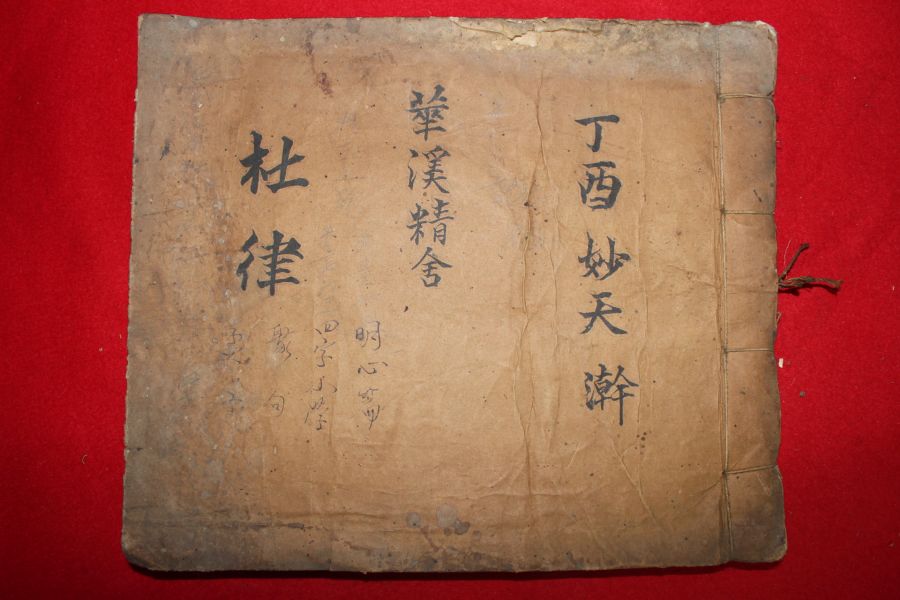 丁酉 妙天 澣
華溪精舍
杜律
明心篇
四字小學
聚句